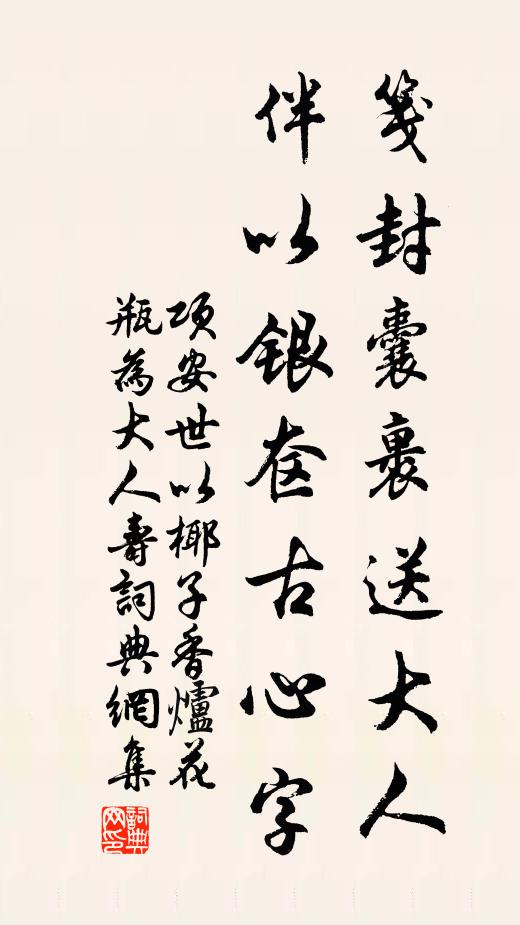 箋封囊裹送大人
伴以銀奁古心字
項安世以椰子香爐花
瓶為大人壽詞典網集
詞典
网印